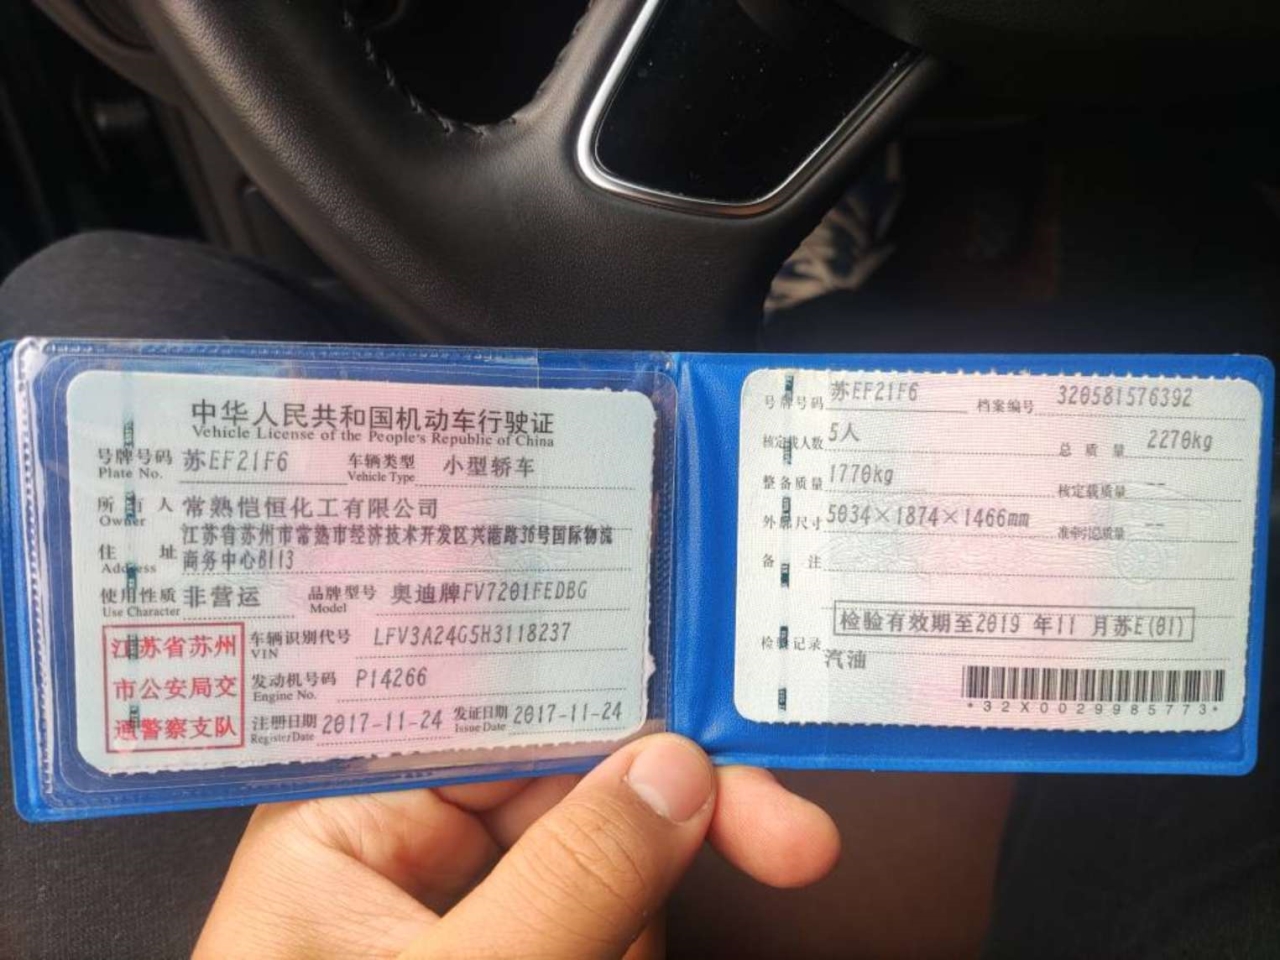 中华人民共和国机动车行驶证
Vehicle License of the People's Republic of China
号牌号码 苏EF21F6 车辆类型 小型轿车
Plate No. Vehicle Type
所有人 常熟恺恒化工有限公司
Owner
住址 江苏省苏州市常熟市经济技术开发区兴港路36号国际物流
Address 商务中心B113
使用性质 非营运 品牌型号 奥迪牌FV7201FEDBG
Use Character Model
江苏省苏州
市公安局交
通警察支队
车辆识别代号 LFV3A24G5H3118237
VIN
发动机号码 P14266
Engine No.
注册日期 2017-11-24 发证日期 2017-11-24
Register Date Issue Date
号牌号码 苏EF21F6 档案编号 320581576392
核定载人数 5人 总质量 2270kg
整备质量 1770kg 核定载质量 --
外廓尺寸 5034×1874×1466mm 准牵引总质量 --
备注
检验有效期至2019年11月苏E(01)
检验记录
汽油
*32X0029985773*